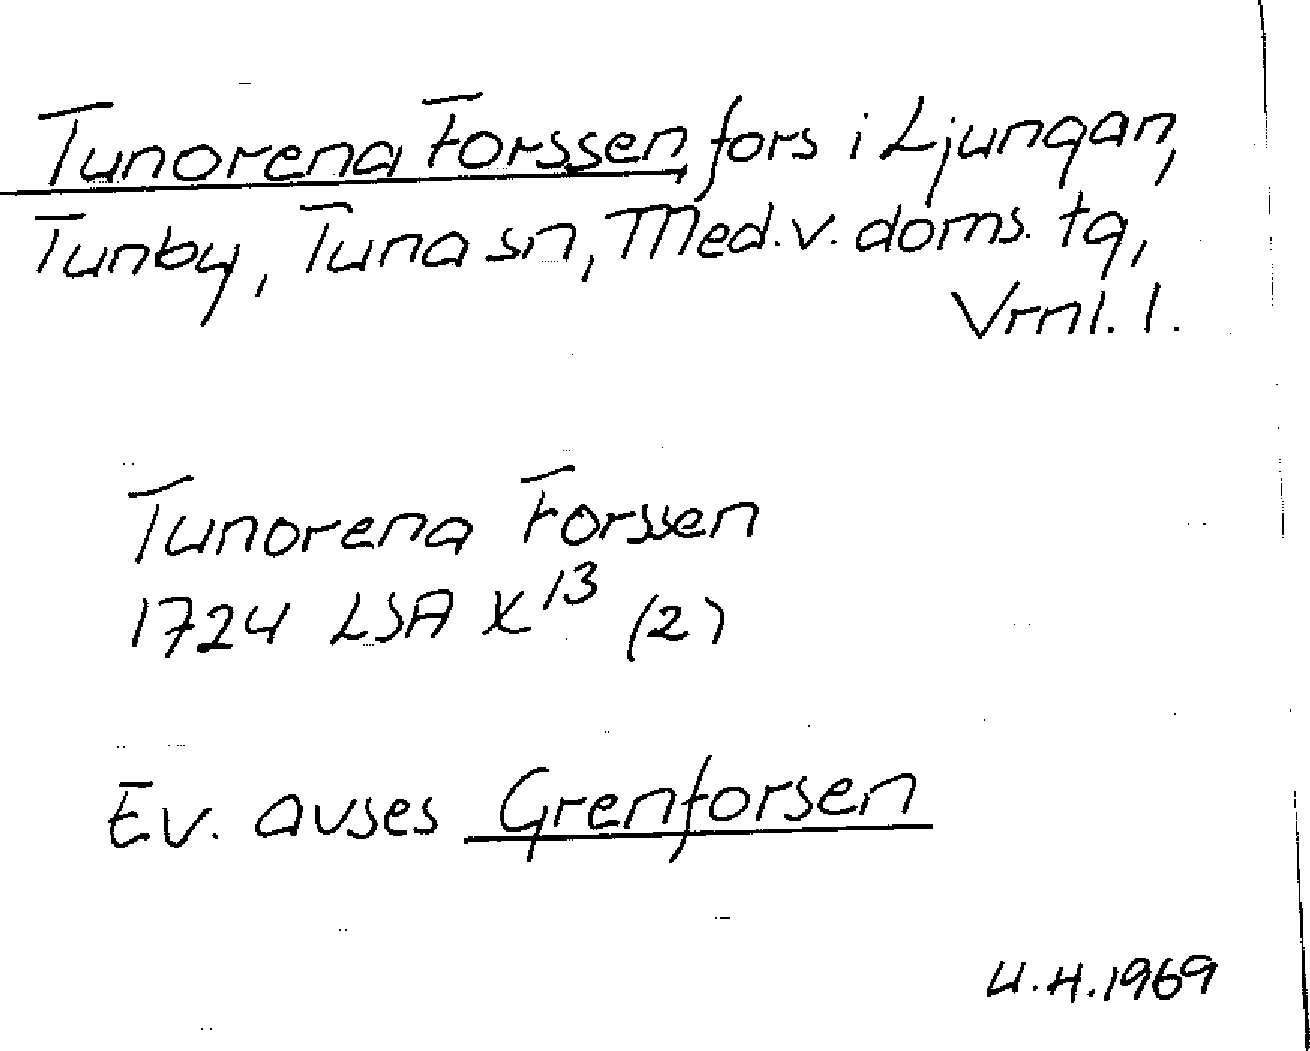 Tunorena Forssen, fors i Ljungan,
Tunby, Tuna sn, Med. v. doms. tg,
Vrnl. l.
Tunorena Forssen
1724 LSA X 13 (2)
Ev. avses Grenforsen
U.H. 1969